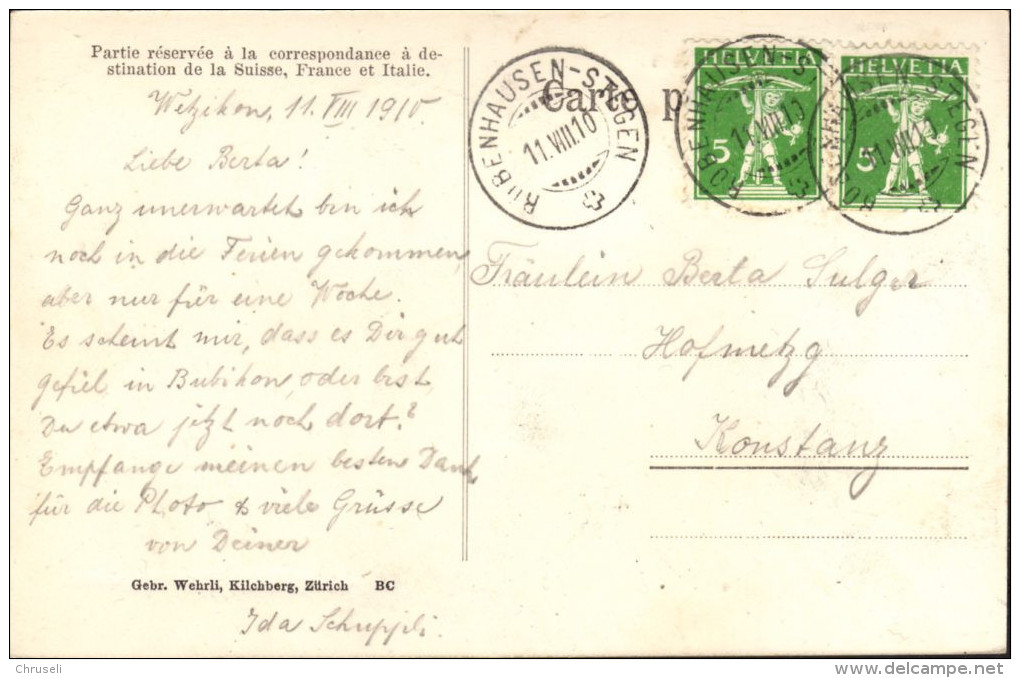 Partie réservée à la correspondance à de-
stination de la Suisse, France et Italie.
Wetzikon, 11. VIII 1910
Liebe Berta!
Ganz unerwartet bin ich
noch in die Ferien gekommen,
aber nur für eine Woche.
Es scheint mir, dass es Dir gut
gefiel in Bubikon, oder bist
Du etwa jetzt noch dort?
Empfange meinen besten Dank
für die Photo & viele Grüsse
von Deiner
Gebr. Wehrli, Kilchberg, Zürich BC
Ida Schuppli.
Carte p
ROBENHAUSEN-STEGEN
11.VIII.10
HELVETIA
5
ROBENHAUSEN-S
11.VIII.10
HELVETIA
5
ROBENHAUSEN-STEGEN
11.VIII.10
Fräulein Berta Sulger
Hofmetzg
Konstanz
Chruseli
delcampe.net